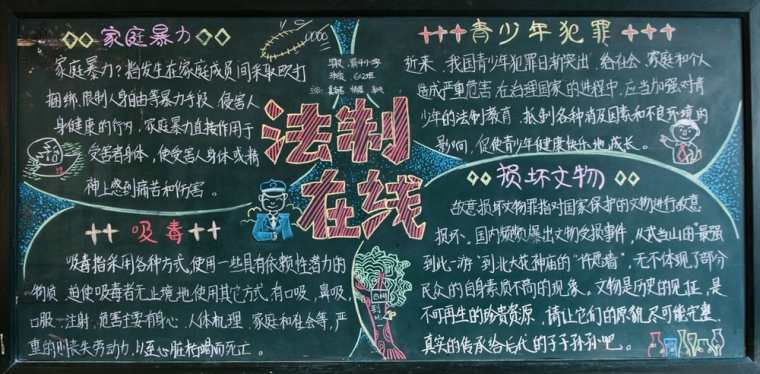 家庭暴力
家庭暴力？指发生在家庭成员间采取殴打
捆绑、限制人身自由等暴力手段，侵害人
身健康的行为，家庭暴力直接作用于
受害者身体，使受害人身体或精
神上感到痛苦和伤害。
青少年犯罪
近来，我国青少年犯罪日渐突出，给社会、家庭和个人
造成严重危害，在治理国家的进程中，应当加强对青
少年的法制教育，抵制各种消极因素和不良环境的
影响，促使青少年健康快乐地成长。
法制
在线
吸毒
吸毒指采用各种方式，使用一些具有依赖性潜力的
物质，迫使吸毒者无止境地使用其它方式，有口吸，鼻吸，
口服，注射，危害主要有身心、人体机理、家庭和社会等，严
重的则丧失劳动力，以至心脏枯竭而死亡。
损坏文物
故意损坏文物罪指对国家保护的文物进行故意
损坏。国内频频爆出文物受损事件，从武当山的“最强
到此一游”到北大花神庙的“许愿墙”，无不体现了部分
民众的自身素质不高的现象。文物是历史的见证，是
不可再生的珍贵资源，请让它们的原貌尽可能完整、
真实的传承给后代的子子孙孙吧。